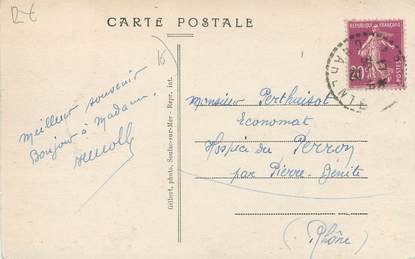 2€
CARTE POSTALE
16
Meilleur souvenir
Bonjour à Madame.
Gilbert, photo, Soulac-sur-Mer - Repr. int.
REPUBLIQUE FRANÇAISE
20c
POSTES
Monsieur Perthuisot
Economat
Hospice du Perron
par Pierre-Bénite
(Rhône)